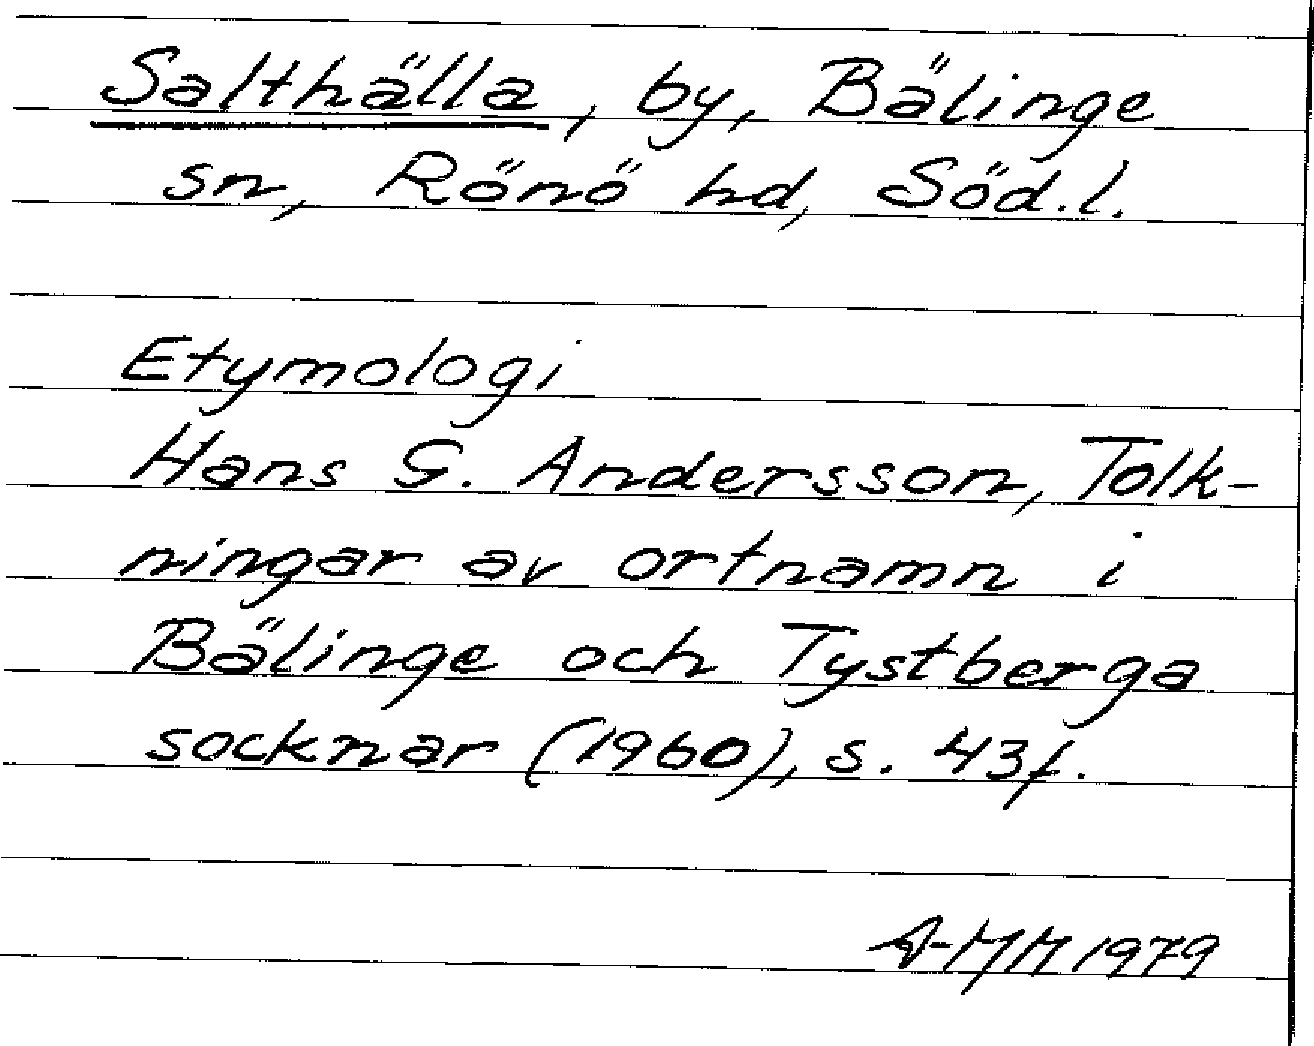 Salthälla, by, Bälinge
sn, Rönö hd, Söd.l.
Etymologi
Hans G. Andersson, Tolk-
ningar av ortnamn i
Bälinge och Tystberga
socknar (1960), s. 43f.
A-MH 1979